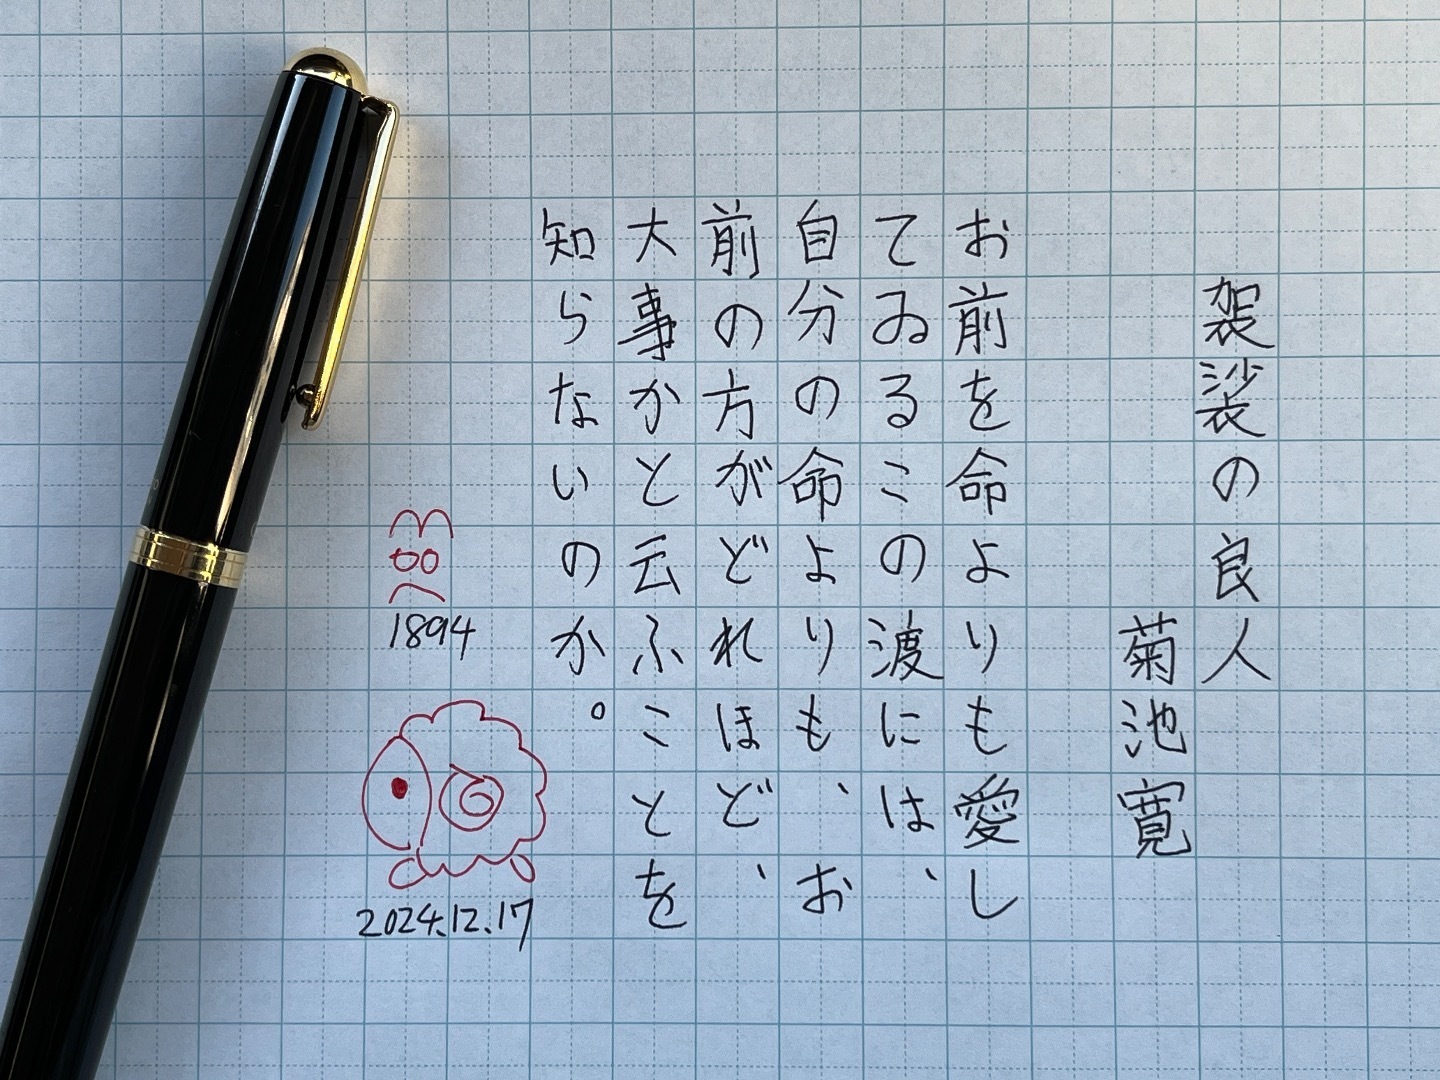 袈裟の良人
菊池寛
お前を命よりも愛し
てゐるこの渡には、
自分の命よりも、お
前の方がどれほど、
大事かと云ふことを
知らないのか。
1894
2024.12.17